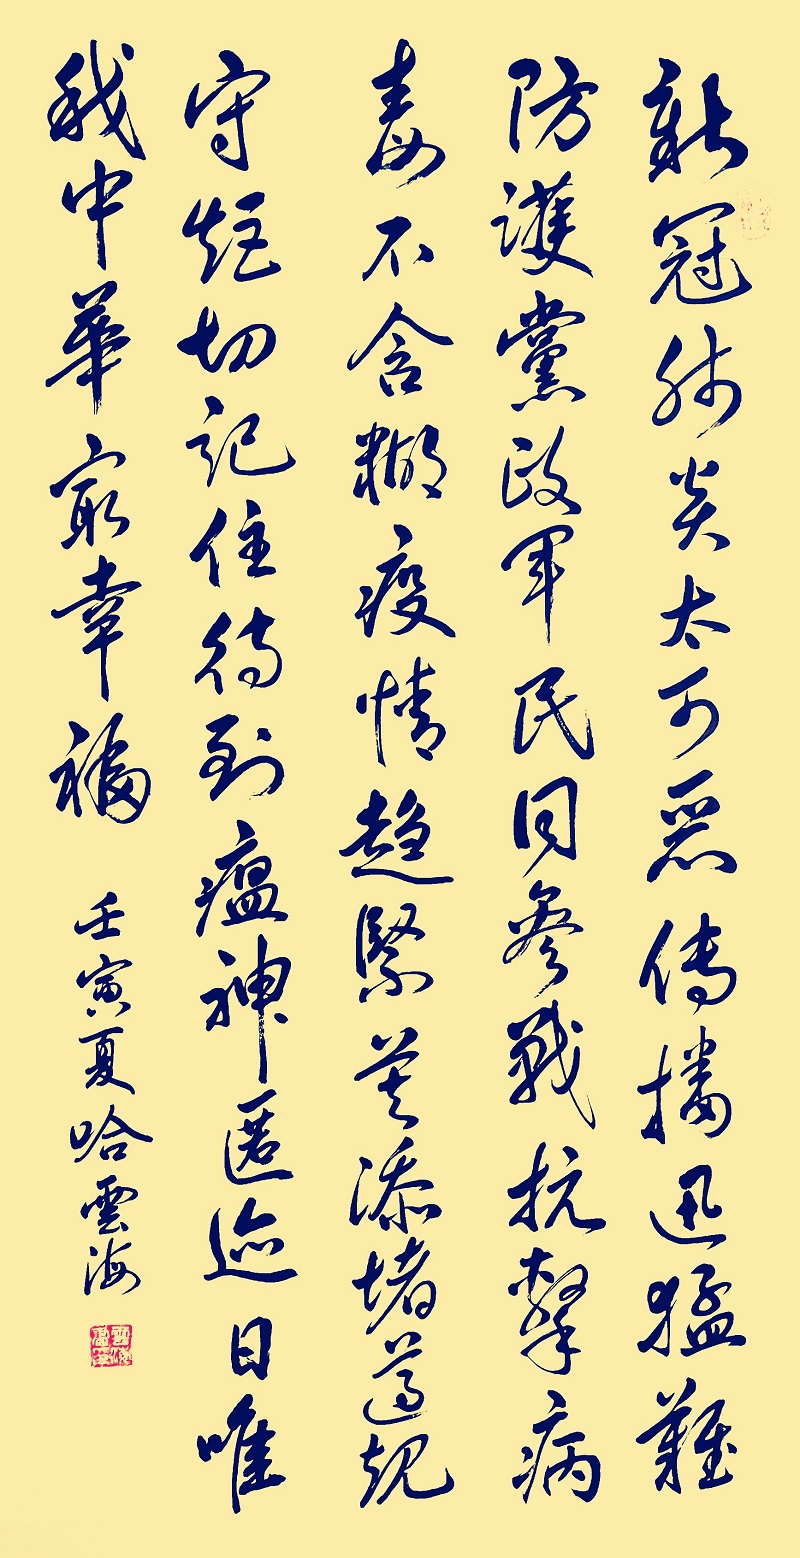 新冠肺炎太可惡傳播迅猛難
防護黨政軍民同參戰抗擊病
毒不含糊疫情趨緊莫添堵遵規
守矩切記住待到瘟神匿迹日唯
我中華最幸福
壬寅夏哈雲海